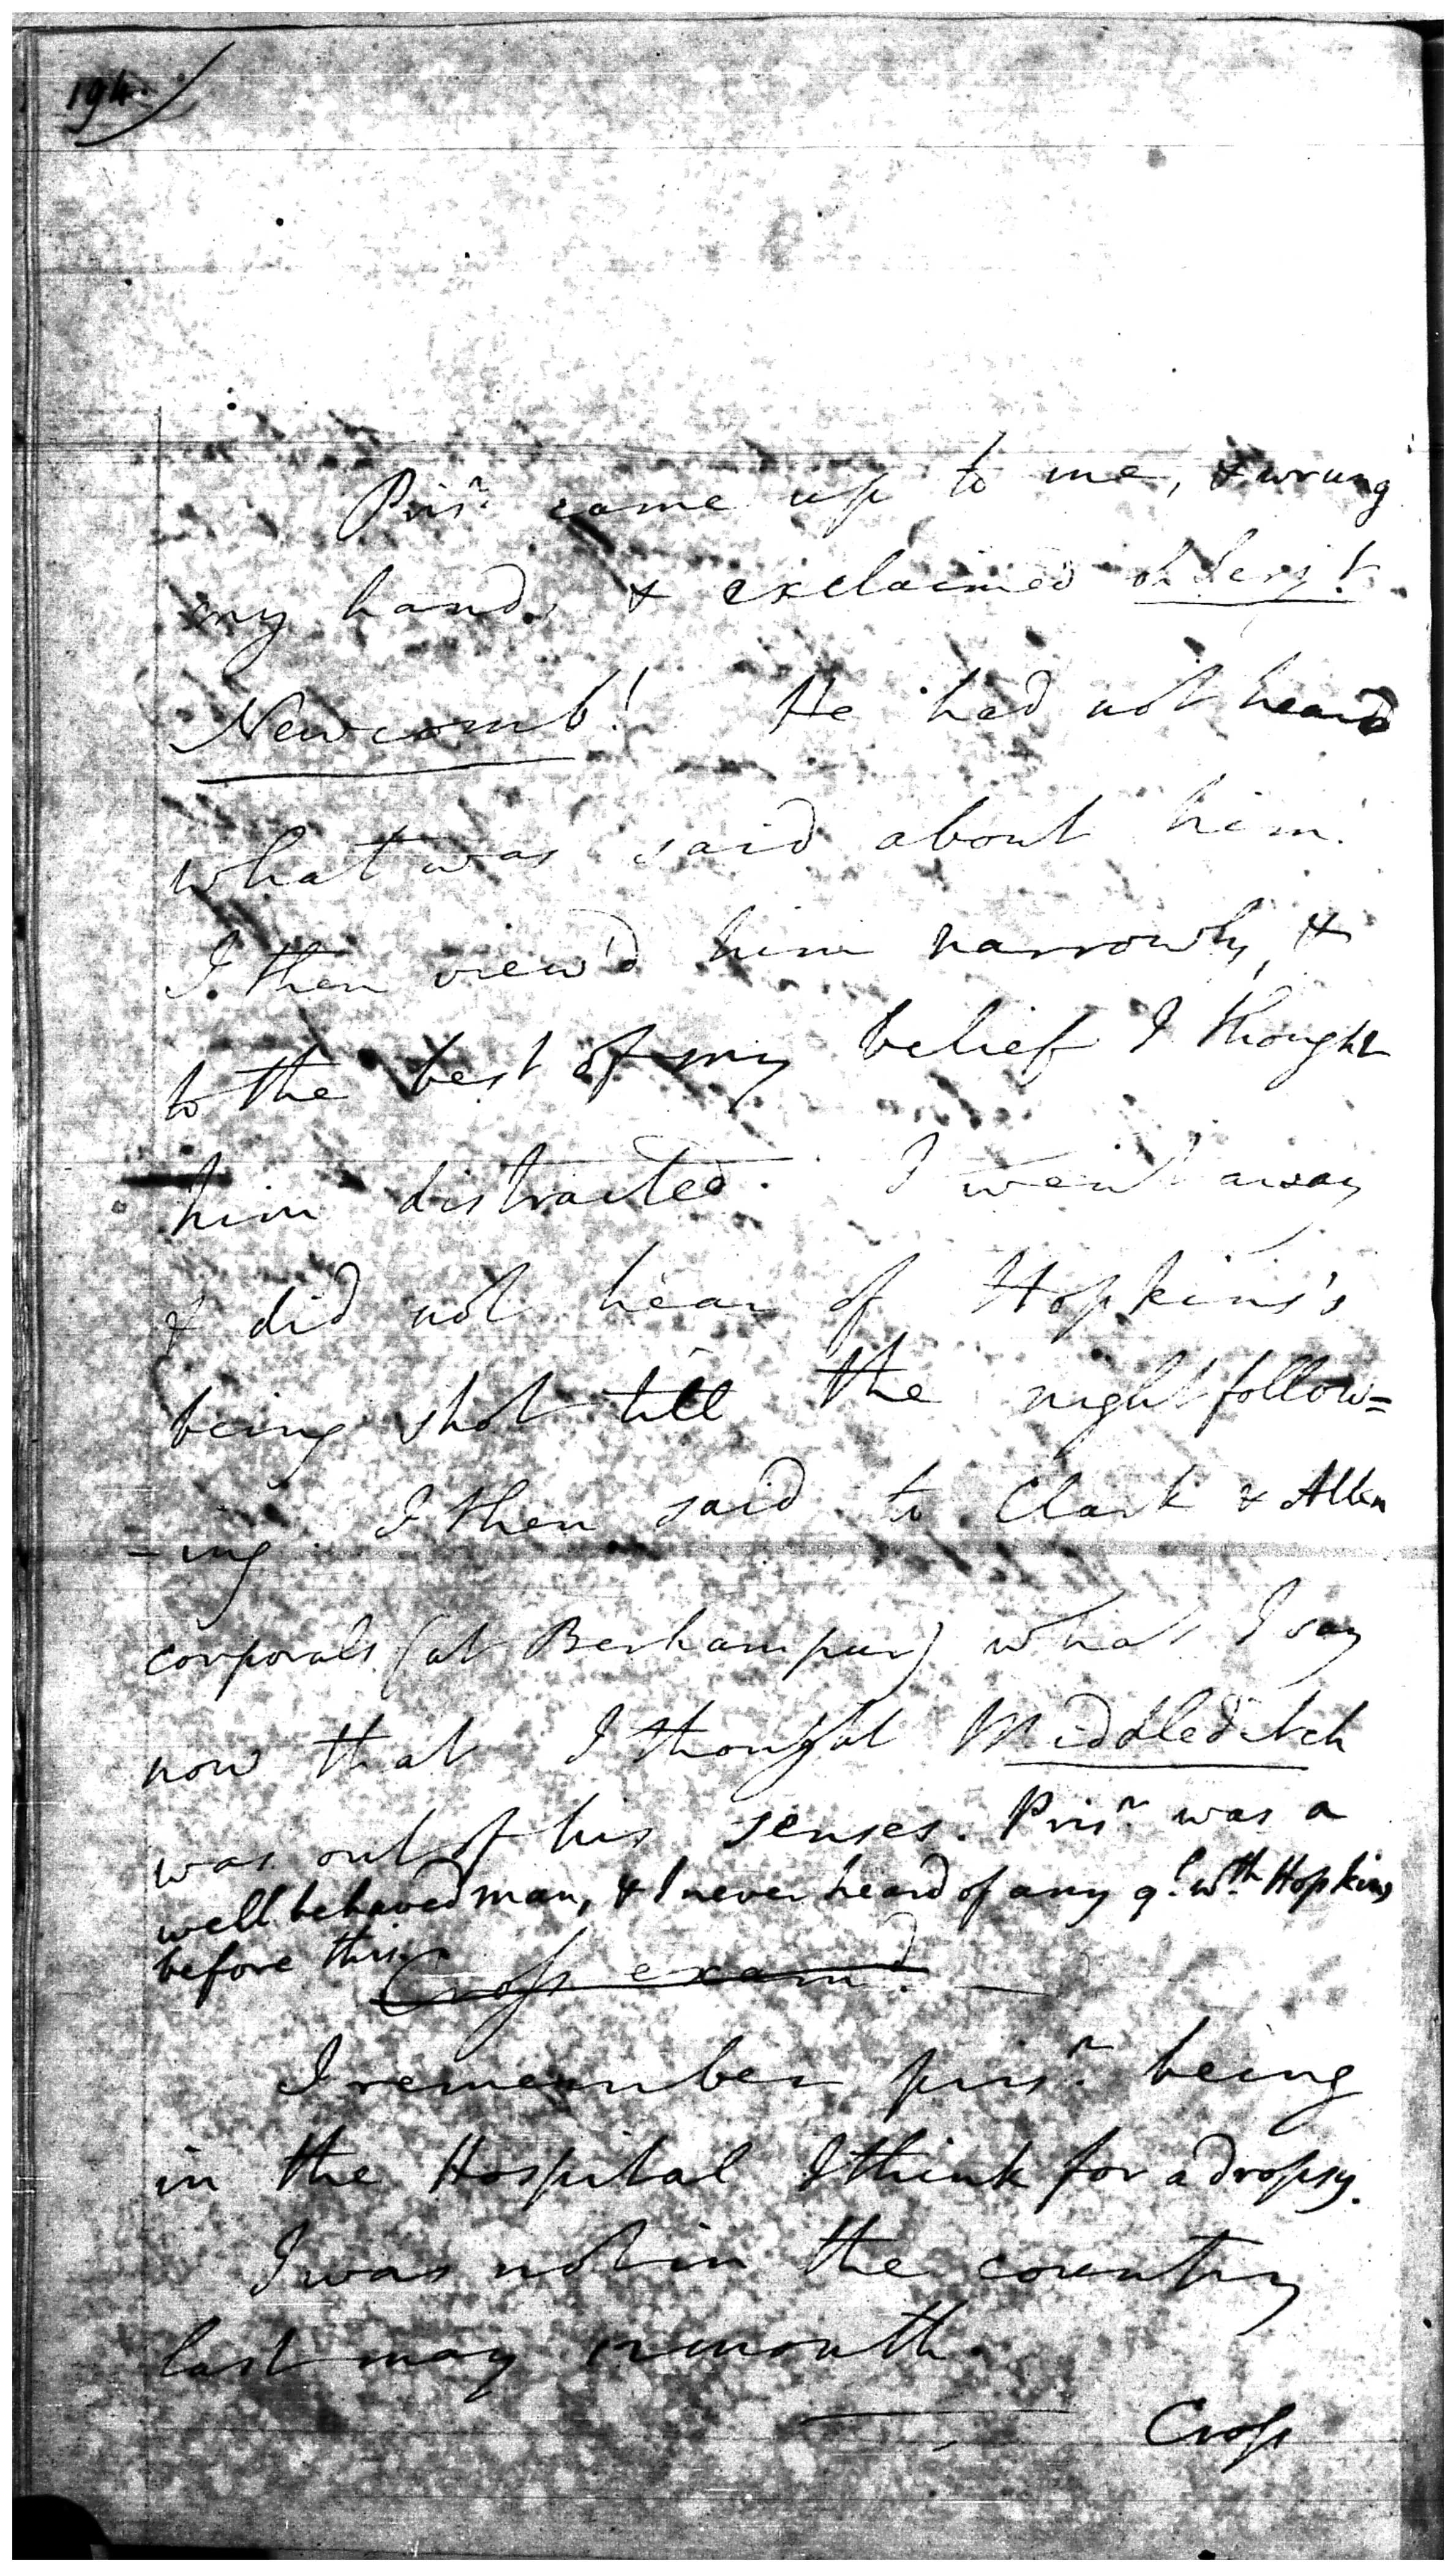 194.
Pris.r came up to me, & wrung
my hand & exclaimed oh Serj.t
Newcomb! He had not heard
what was said about him.
I then view'd him narrowly, &
to the best of my belief I thought
him distracted. I went away
& did not hear of Hopkins's
being shot till the night follow=
-ing. I then said to Clark & Allen
corporals (at Berhampur) what I say
now that I thought Middleditch
was out of his senses. Pris.r was a
well behaved man, & I never heard of any q.l w.th Hopkins
before this.
Cross exam.d
I remember pris.r being
in the Hospital I think for a dropsy.
I was not in the country
last may 12month.
Cross